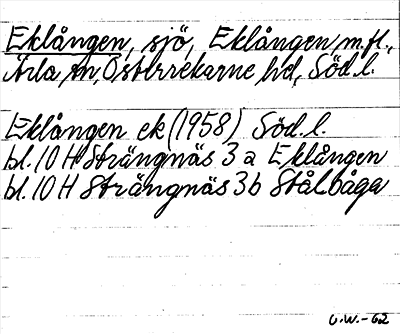 Eklången, sjö, Eklången, m.fl.,
Ärla sn, Österrekarne hd, Söd.l.
Eklången ek (1958) Söd.l.
bl. 10 H Strängnäs 3 a Eklången
bl. 10 H Strängnäs 3b Stålbåga
O.W.-62